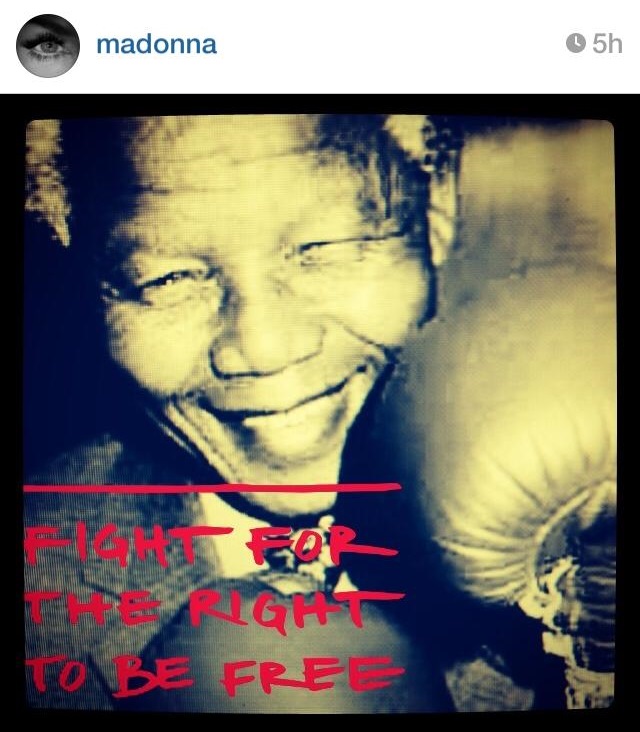 madonna
5h
FIGHT FOR
THE RIGHT
TO BE FREE